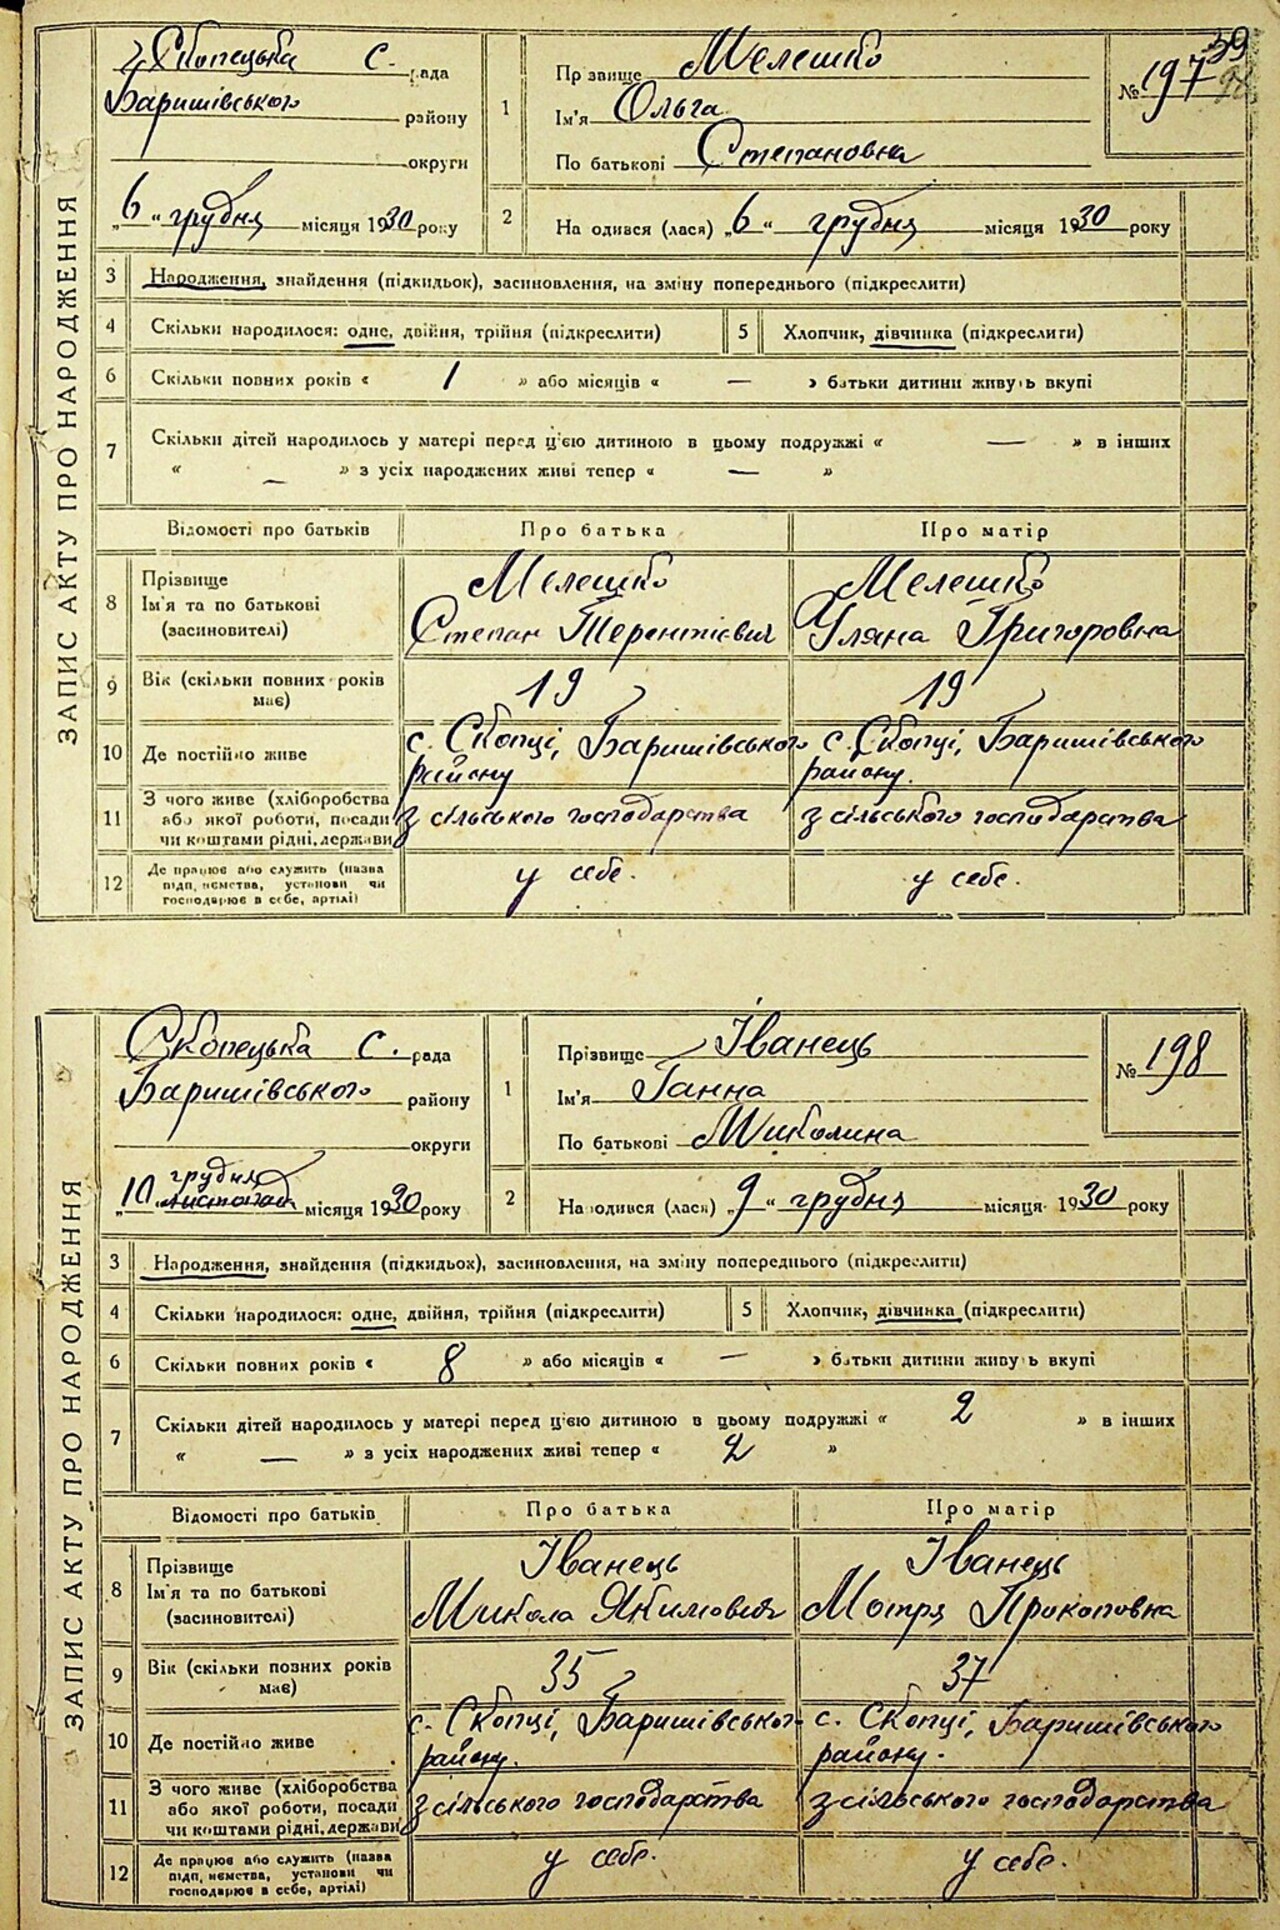 39
Скопецька с. рада
Баришівського району
округи
„6“ грудня місяця 1930 року
1
Прізвище Мелешко
Ім'я Ольга
По батькові Степановна
№ 197
2
Народився (лася) „6“ грудня місяця 1930 року
ЗАПИС АКТУ ПРО НАРОДЖЕННЯ
3 Народження, знайдення (підкидьок), засиновлення, на зміну попереднього (підкреслити)
4 Скільки народилося: одне, двійня, трійня (підкреслити) 5 Хлопчик, дівчинка (підкреслити)
6 Скільки повних років « 1 » або місяців « — » батьки дитини живуть вкупі
7 Скільки дітей народилось у матері перед ц'єю дитиною в цьому подружжі « — » в інших
« — » з усіх народжених живі тепер « — »
Відомості про батьків Про батька Про матір
8 Прізвище Мелешко Мелешко
Ім'я та по батькові Степан Терентієвич Уляна Григоровна
(засиновителі)
9 Вік (скільки повних років має) 19 19
10 Де постійно живе с. Скопці, Баришівського с. Скопці, Баришівського
району району.
11 З чого живе (хліборобства
або якої роботи, посади з сільського господарства з сільського господарства
чи коштами рідні, держави
12 Де працює або служить (назва у себе. у себе.
підп, иємства, установи чи
господарює в себе, артілі)
Скопецька с. рада
Баришівського району
округи
грудня
„10“ листопад місяця 1930 року
1
Прізвище Іванець
Ім'я Ганна
По батькові Миколина
№ 198
2
Народився (лася) „9“ грудня місяця 1930 року
ЗАПИС АКТУ ПРО НАРОДЖЕННЯ
3 Народження, знайдення (підкидьок), засиновлення, на зміну попереднього (підкреслити)
4 Скільки народилося: одне, двійня, трійня (підкреслити) 5 Хлопчик, дівчинка (підкреслити)
6 Скільки повних років « 8 » або місяців « — » батьки дитини живуть вкупі
7 Скільки дітей народилось у матері перед ц'єю дитиною в цьому подружжі « 2 » в інших
« — » з усіх народжених живі тепер « 2 »
Відомості про батьків Про батька Про матір
8 Прізвище Іванець Іванець
Ім'я та по батькові Микола Якимович Мотря Прокоповна
(засиновителі)
9 Вік (скільки повних років має) 35 37
10 Де постійно живе с. Скопці, Баришівського с. Скопці, Баришівського
району. району.
11 З чого живе (хліборобства
або якої роботи, посади з сільського господарства з сільського господарства
чи коштами рідні, держави
12 Де працює або служить (назва у себе. у себе.
підп, иємства, установи чи
господарює в себе, артілі)